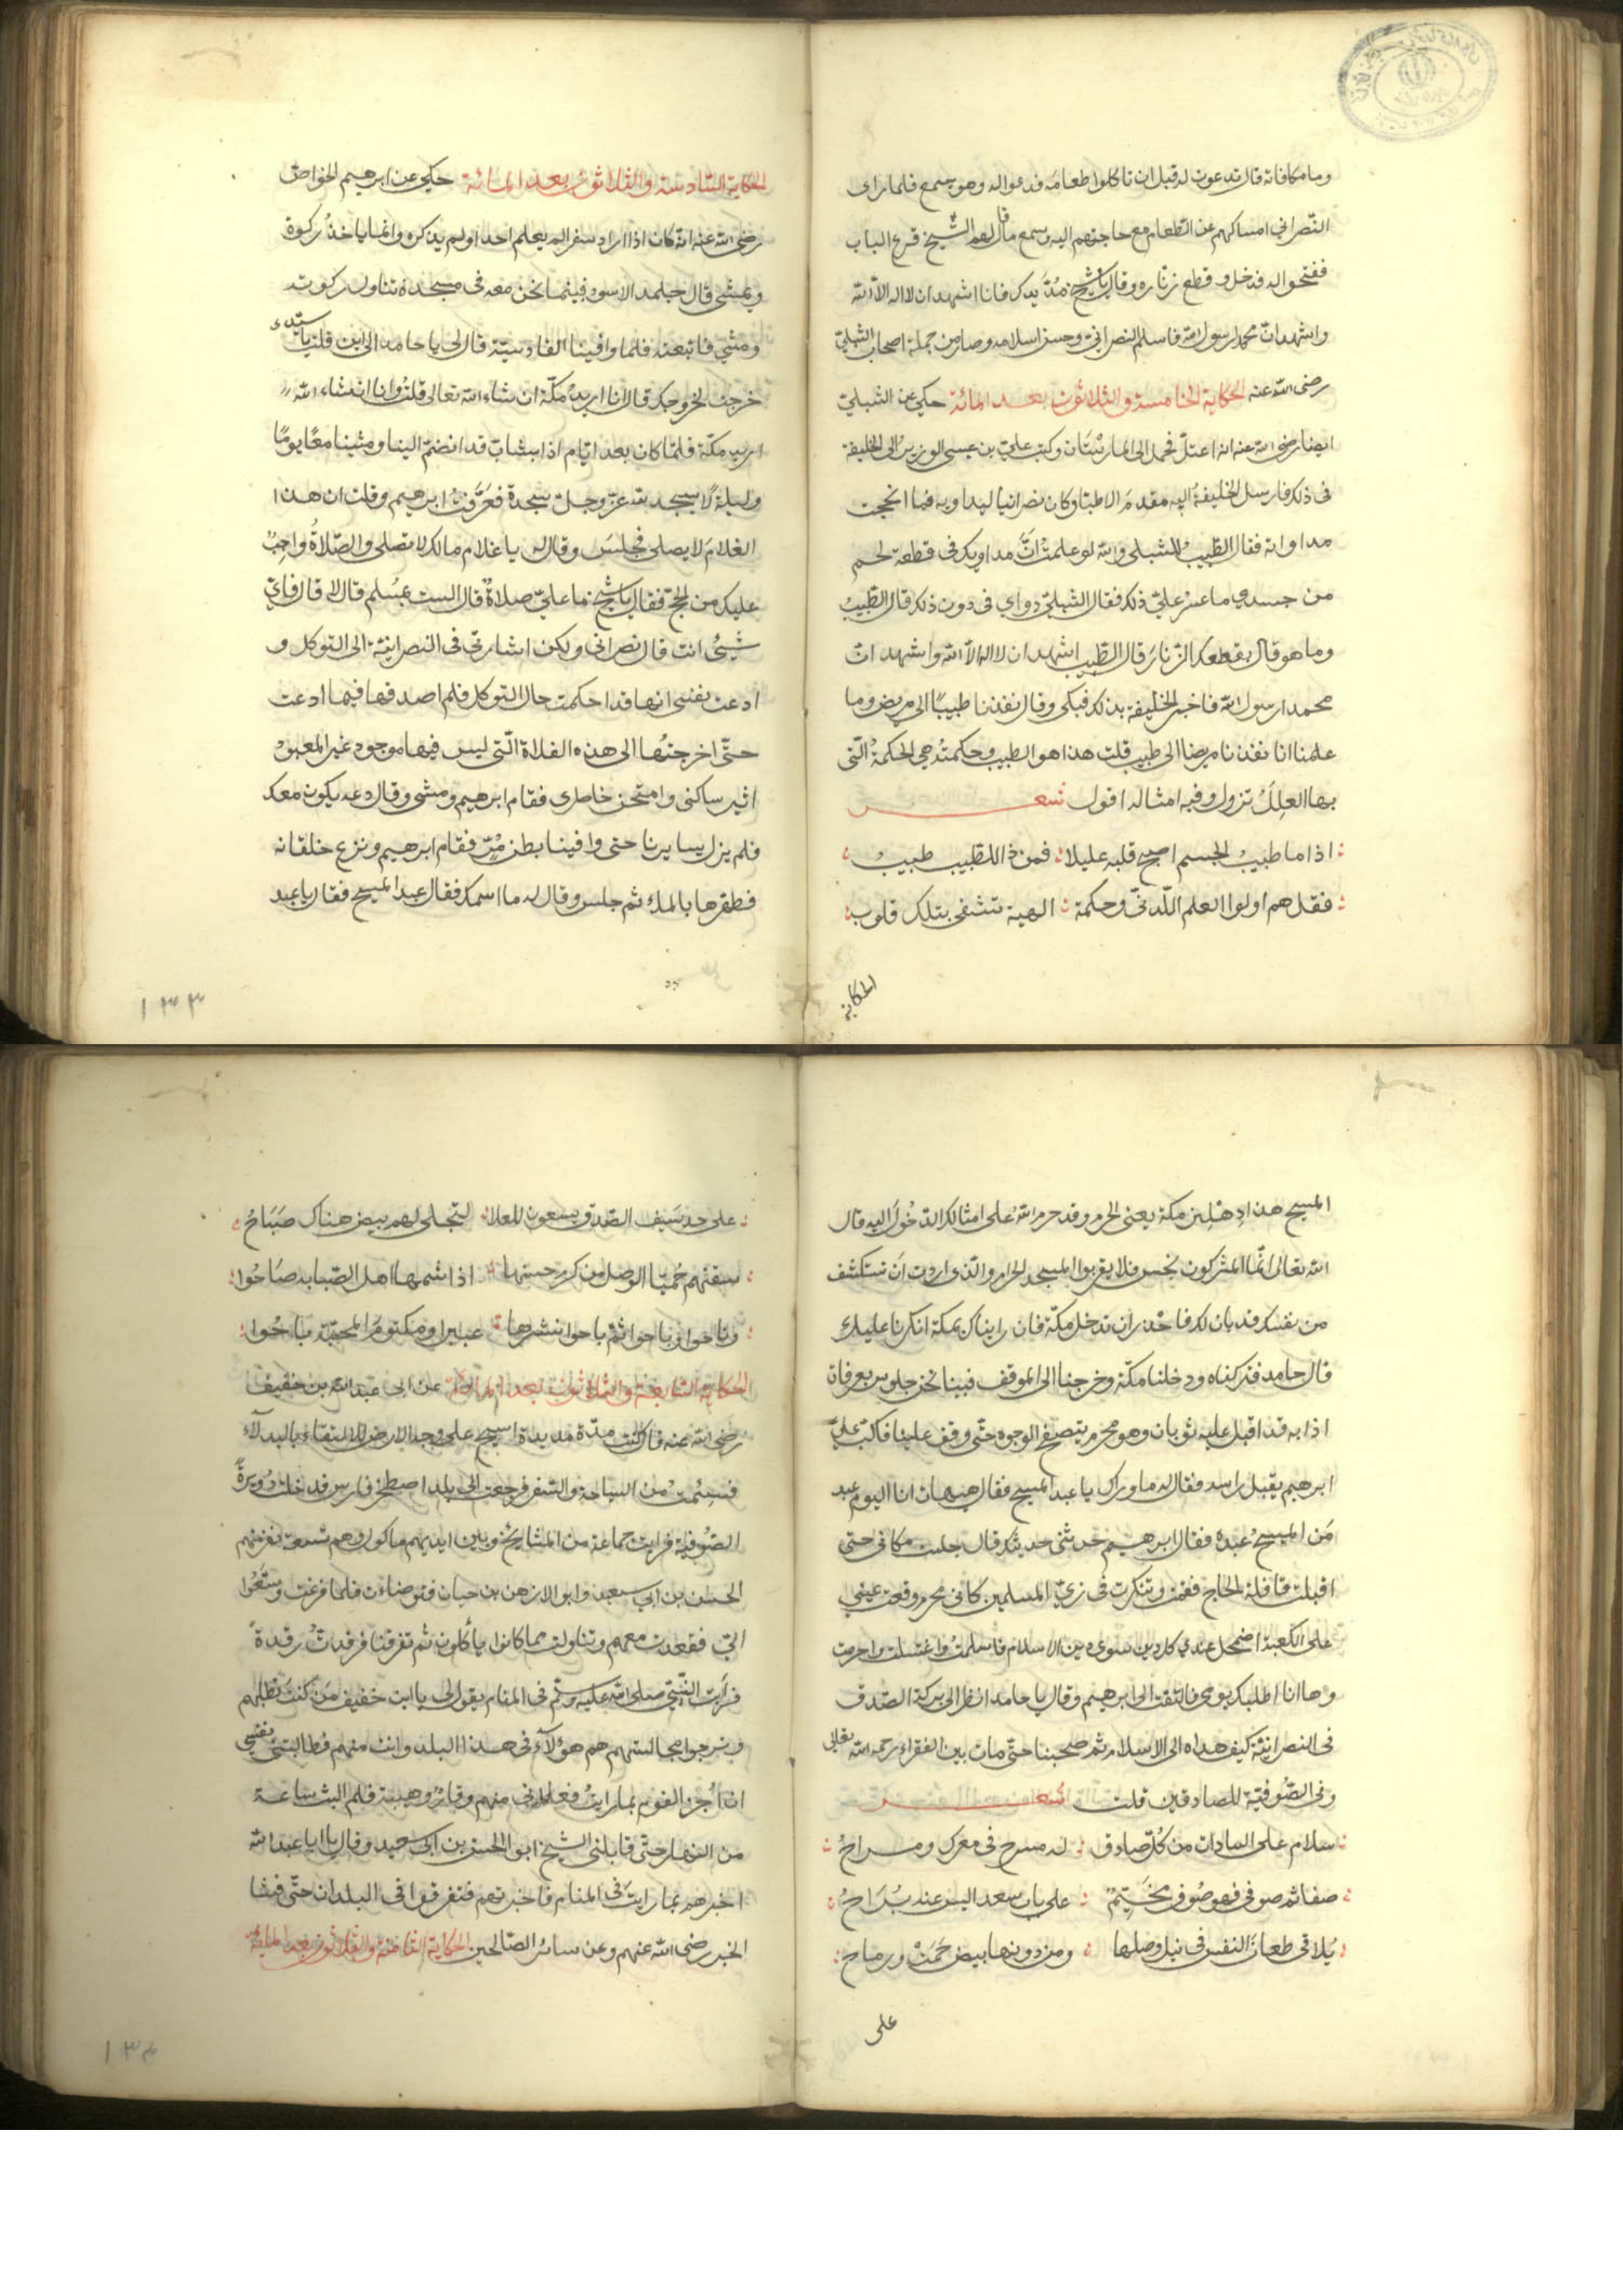 وما مكافاته قال تدعون له قبل ان تاكلوا طعامه فدعوا له وهو يسمع فلما راى
النصراني امساكهم عن الطعام مع حاجتهم اليه وسمع ما قال لهم الشيخ قرع الباب
ففتحوا له فدخل وقطع زناره وقال يا شيخ مُدَّ يدك فانا اشهد ان لا اله الا الله
واشهد ان محمدا رسول الله فاسلم النصراني وحسن اسلامه وصار من جملة اصحاب الشبلي
رضى الله عنه الحكاية الخامسة والثلاثون بعد المائة حكي عن الشبلي
ايضا رضى الله عنه انه اعتلّ فحمل الى المارستان وكتب علي بن عيسى الوزير الى الخليفة
فى ذلك فارسل الخليفة اليه مقدم الاطبا وكان نصرانيا ليداويه فما انجحت
مداواته فقال الطبيبُ للشبلى والله لو علمتُ انَّ مداويك فى قطعة لحم
من جسدي ما عسر عليّ ذلك فقال الشبلي دواي فى دون ذلك قال الطبيبُ
وما هو قال بقطعك الزنار قال الطبيب اشهد ان لا اله الا الله واشهد ان
محمدا رسول الله فاخبر الخليفة بذلك فبكى وقال نفذنا طبيبًا الى مريض وما
علمنا انا نفذنا مريضا الى طبيب قلت هذا هو الطبيب وحكمته هي الحكمةُ التى
بها العِلَلُ تزول وفيه امثاله اقول شعر
اذا ما طبيبُ الجسم اصبح قلبه عليلا فمن ذا للطبيب طبيبُ
فقل هم اولوا العلم اللّدنّى وحكمة الهية تشفى بتلك قلوب
الحكاية
الحكاية السادسة والثلاثون بعد المائة حكي عن ابرهيم الخواص
رضى الله عنه انه كان اذا اراد سفرا لم يعلم احدا ولم يذكره وانما ياخذُ ركوة
ويمشي قال حامد الاسود فبينما نحن معه فى مسجده تناول ركوته
ومشي فاتبعته فلما وافينا القادسيّة قال لى يا حامد الى اين قلت يا سيدي
خرجت لخروجك قال انا اريدُ مكّة ان شاء الله تعالى قلتُ وانا انشاء الله
اريد مكّة فلمّا كان بعد ايّام اذا بشابّ قد انضمّ الينا ومشينا معًا يومًا
وليلةً لا يسجد لله عزّ وجلّ سجدة فعَرَّفتُ ابرهيم وقلت ان هذا
الغلامَ لا يصلى فجلسَ وقال له يا غلام مالك لا تصلى والصّلاةُ واجبٌ
عليك من الحج فقال يا شيخ ما عليّ صلاةٌ قال الست بمُسلم قال لا قال فاي
شيئ انت قال نصرانى ولكن اشارتى فى النصرانيّة الى التوكل و
ادعت نفسى انها قد احكمت حال التوكل فلم اصدقها فيما ادعت
حتّى اخرجتُها الى هذه الفلاة الّتى ليس فيها موجود غير المعبود
اثير ساكنى وامتحن خاطرى فقام ابرهيم ومشى وقال دعه يكون معك
فلم يزل يسايرنا حتى وافينا بطن مَرّ فقام ابرهيم ونزع خلقانه
فطهرها بالماء ثم جلس وقال له ما اسمك فقال عبد المسيح فقال يا عبد
١٣٣
المسيح هذا دِهليز مكة يعنى الحرم وقد حرم الله على امثالك الدّخولَ اليه قال
الله تعالى انّما المشركون نجس فلا يقربوا المسجد الحرام والّذى اردت ان تستكشف
من نفسك قد بان لك فاحذر ان تدخل مكّة فان رايناك بمكة انكرنا عليك
قال حامد فتركناه ودخلنا مكّة وخرجنا الى الموقف فبينا نحن جلوس بعرفات
اذا به قد اقبل عليه ثوبان وهو محرم يتصفح الوجوه حتّى وقف علينا فاكبّ علي
ابرهيم يقبل راسه فقال له ما وراك يا عبد المسيح فقال هيهات انا اليوم عبد
مَن المسيح عبده فقال ابرهيم حدثنى حديثك قال جلست مكانى حتى
اقبلت قافلة الحاج فقمت وتنكرت فى زيّ المسلمين كانى محرم وقعت عينى
على الكعبة اضمحل عندي كل دين سوى دين الاسلام فاسلمتُ واغتسلت واحرمت
وها انا اطلبك يومى فالتفت الى ابرهيم وقال يا حامد انظر الى بركة الصّدق
فى النصرانيّة كيف هداه الى الاسلام ثم صحبنا حتّى مات بين الفقراء رحمه الله تعالى
وفى الصّوفيّة للصادقين قلت شعر
سلام على السادات من كُلّ صادق له مسرح فى معرك ومراحُ
صفا ثم صوفى فهو صُوفى مخيّم على باب سعد اليس عنه بُرَاحُ
يُلاقى طعانَ النفس فى نيل وصلها ومن دونها بيض حَمَتْ ورماح
على
على حد سَيف الصّدق يسعون للعلا لتجلى لهم بيض هناك صَبَاحُ
سقتهم حُميّا الوصل من كرم حسنها اذا شمها اهل الصّبابه صَاحُوا
وناحوا وباحوا ثمّ باحوا بنشرها عبيرا ومكتومَ المحبّة باحُوا
الحكاية السابعة والثلاثون بعد المائة عن ابى عبد الله بن خفيف
رضى الله عنه قال كنت مدّة مديدة اسيح على وجه الارض للالتقاء بالبدلآء
فسئمت من السياحة والسّفر فرجعت الى بلد اصطخر فارس فدخلت دُوَيرةَ
الصّوفيّة فرايت جماعة من المشايخ وبين ايديهم ماكول وهم تسعة نفر منهم
الحسن بن ابي سعيد وابو الازهر بن حيان فتوضأت فلما فرغت وسّعُوا
اليّ فقعدت معهم وتناولت مما كانوا ياكلون ثم تفرقنا فرقدت رقدةً
فرأيت النّبيّ صلى الله عليه وسلّم فى المنام يقول لى يا ابن خفيف مَن كنتَ تطلبهم
وترجوا مجالستهم هم هؤلآء فى هذا البلد وانت منهم فطالبتنى نفسى
ان اُخبر القوم بما رايتُ فعلانى منهم وقارٌ وهيبة فلم البث ساعة
من النهار حتّى قابلنى الشيخ ابو الحسن بن ابى سعيد وقال يا ابا عبد الله
اخبرهم بما رايتَ فى المنام فاخبرتهم فتفرقوا فى البلدان حتّى فشا
الخبر رضى الله عنهم وعن سائر الصّالحين الحكاية الثامنة والثلاثون بعد المائة
١٣٤